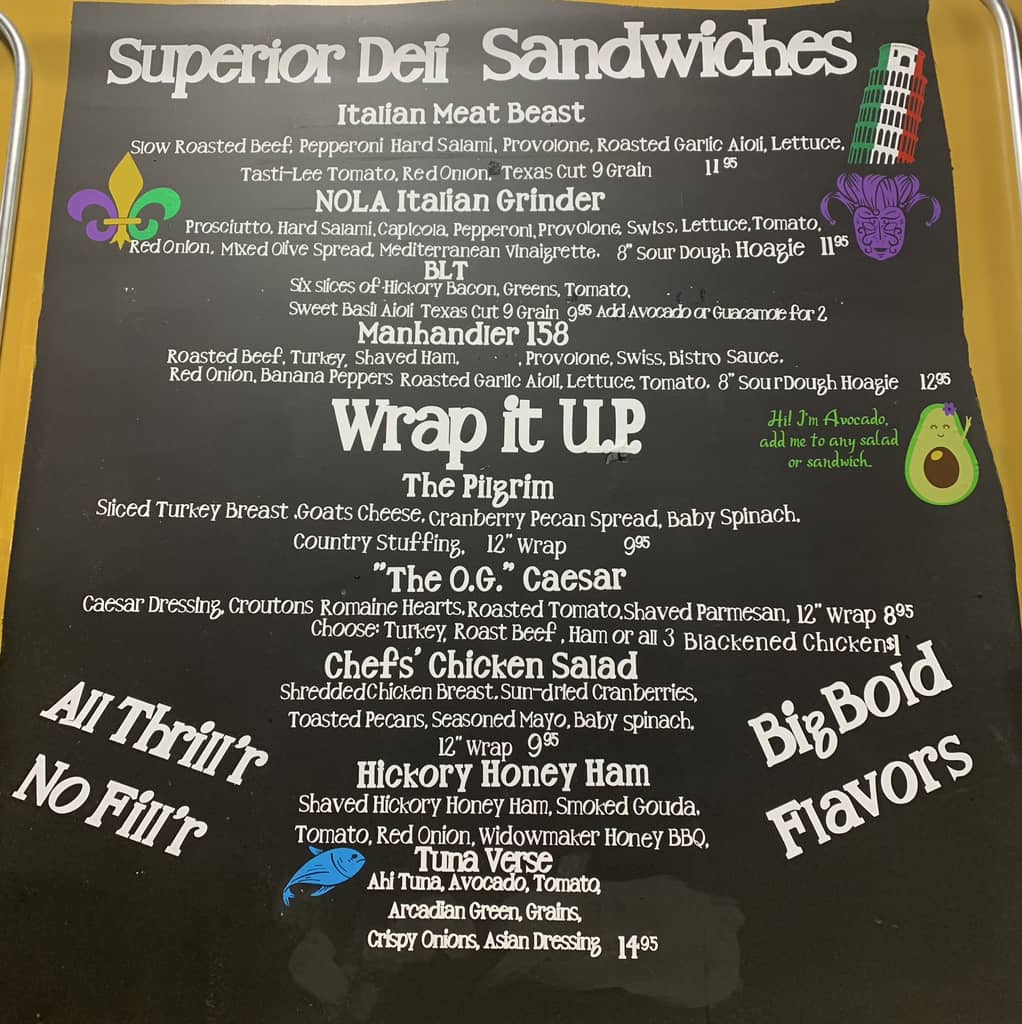 Superior Deli Sandwiches
Italian Meat Beast
Slow Roasted Beef, Pepperoni Hard Salami, Provolone, Roasted Garlic Aioli, Lettuce,
Tasti-Lee Tomato, Red Onion, Texas Cut 9 Grain 11 95
NOLA Italian Grinder
Prosciutto, Hard Salami, Capicola, Pepperoni, Provolone, Swiss, Lettuce, Tomato,
Red Onion, Mixed Olive Spread, Mediterranean Vinaigrette, 8" Sour Dough Hoagie 11 95
BLT
Six slices of Hickory Bacon, Greens, Tomato,
Sweet Basil Aioli Texas Cut 9 Grain 9 95 Add Avocado or Guacamole for 2
Manhandler 158
Roasted Beef, Turkey, Shaved Ham, , Provolone, Swiss, Bistro Sauce,
Red Onion, Banana Peppers Roasted Garlic Aioli, Lettuce, Tomato, 8" Sour Dough Hoagie 12 95
Wrap it U.P.
Hi! I'm Avocado,
add me to any salad
or sandwich.
The Pilgrim
Sliced Turkey Breast ,Goats Cheese, Cranberry Pecan Spread, Baby Spinach,
Country Stuffing, 12" Wrap 9 95
"The O.G." Caesar
Caesar Dressing, Croutons Romaine Hearts, Roasted Tomato, Shaved Parmesan, 12" Wrap 8 95
Choose: Turkey, Roast Beef , Ham or all 3 Blackened Chicken $1
Chefs' Chicken Salad
Shredded Chicken Breast, Sun-dried Cranberries,
Toasted Pecans, Seasoned Mayo, Baby spinach,
12" Wrap 9 95
Hickory Honey Ham
Shaved Hickory Honey Ham, Smoked Gouda,
Tomato, Red Onion, Widowmaker Honey BBQ,
Tuna Verse
Ahi Tuna, Avocado, Tomato,
Arcadian Green, Grains,
Crispy Onions, Asian Dressing 14 95
All Thrill'r
No Fill'r
Big Bold
Flavors